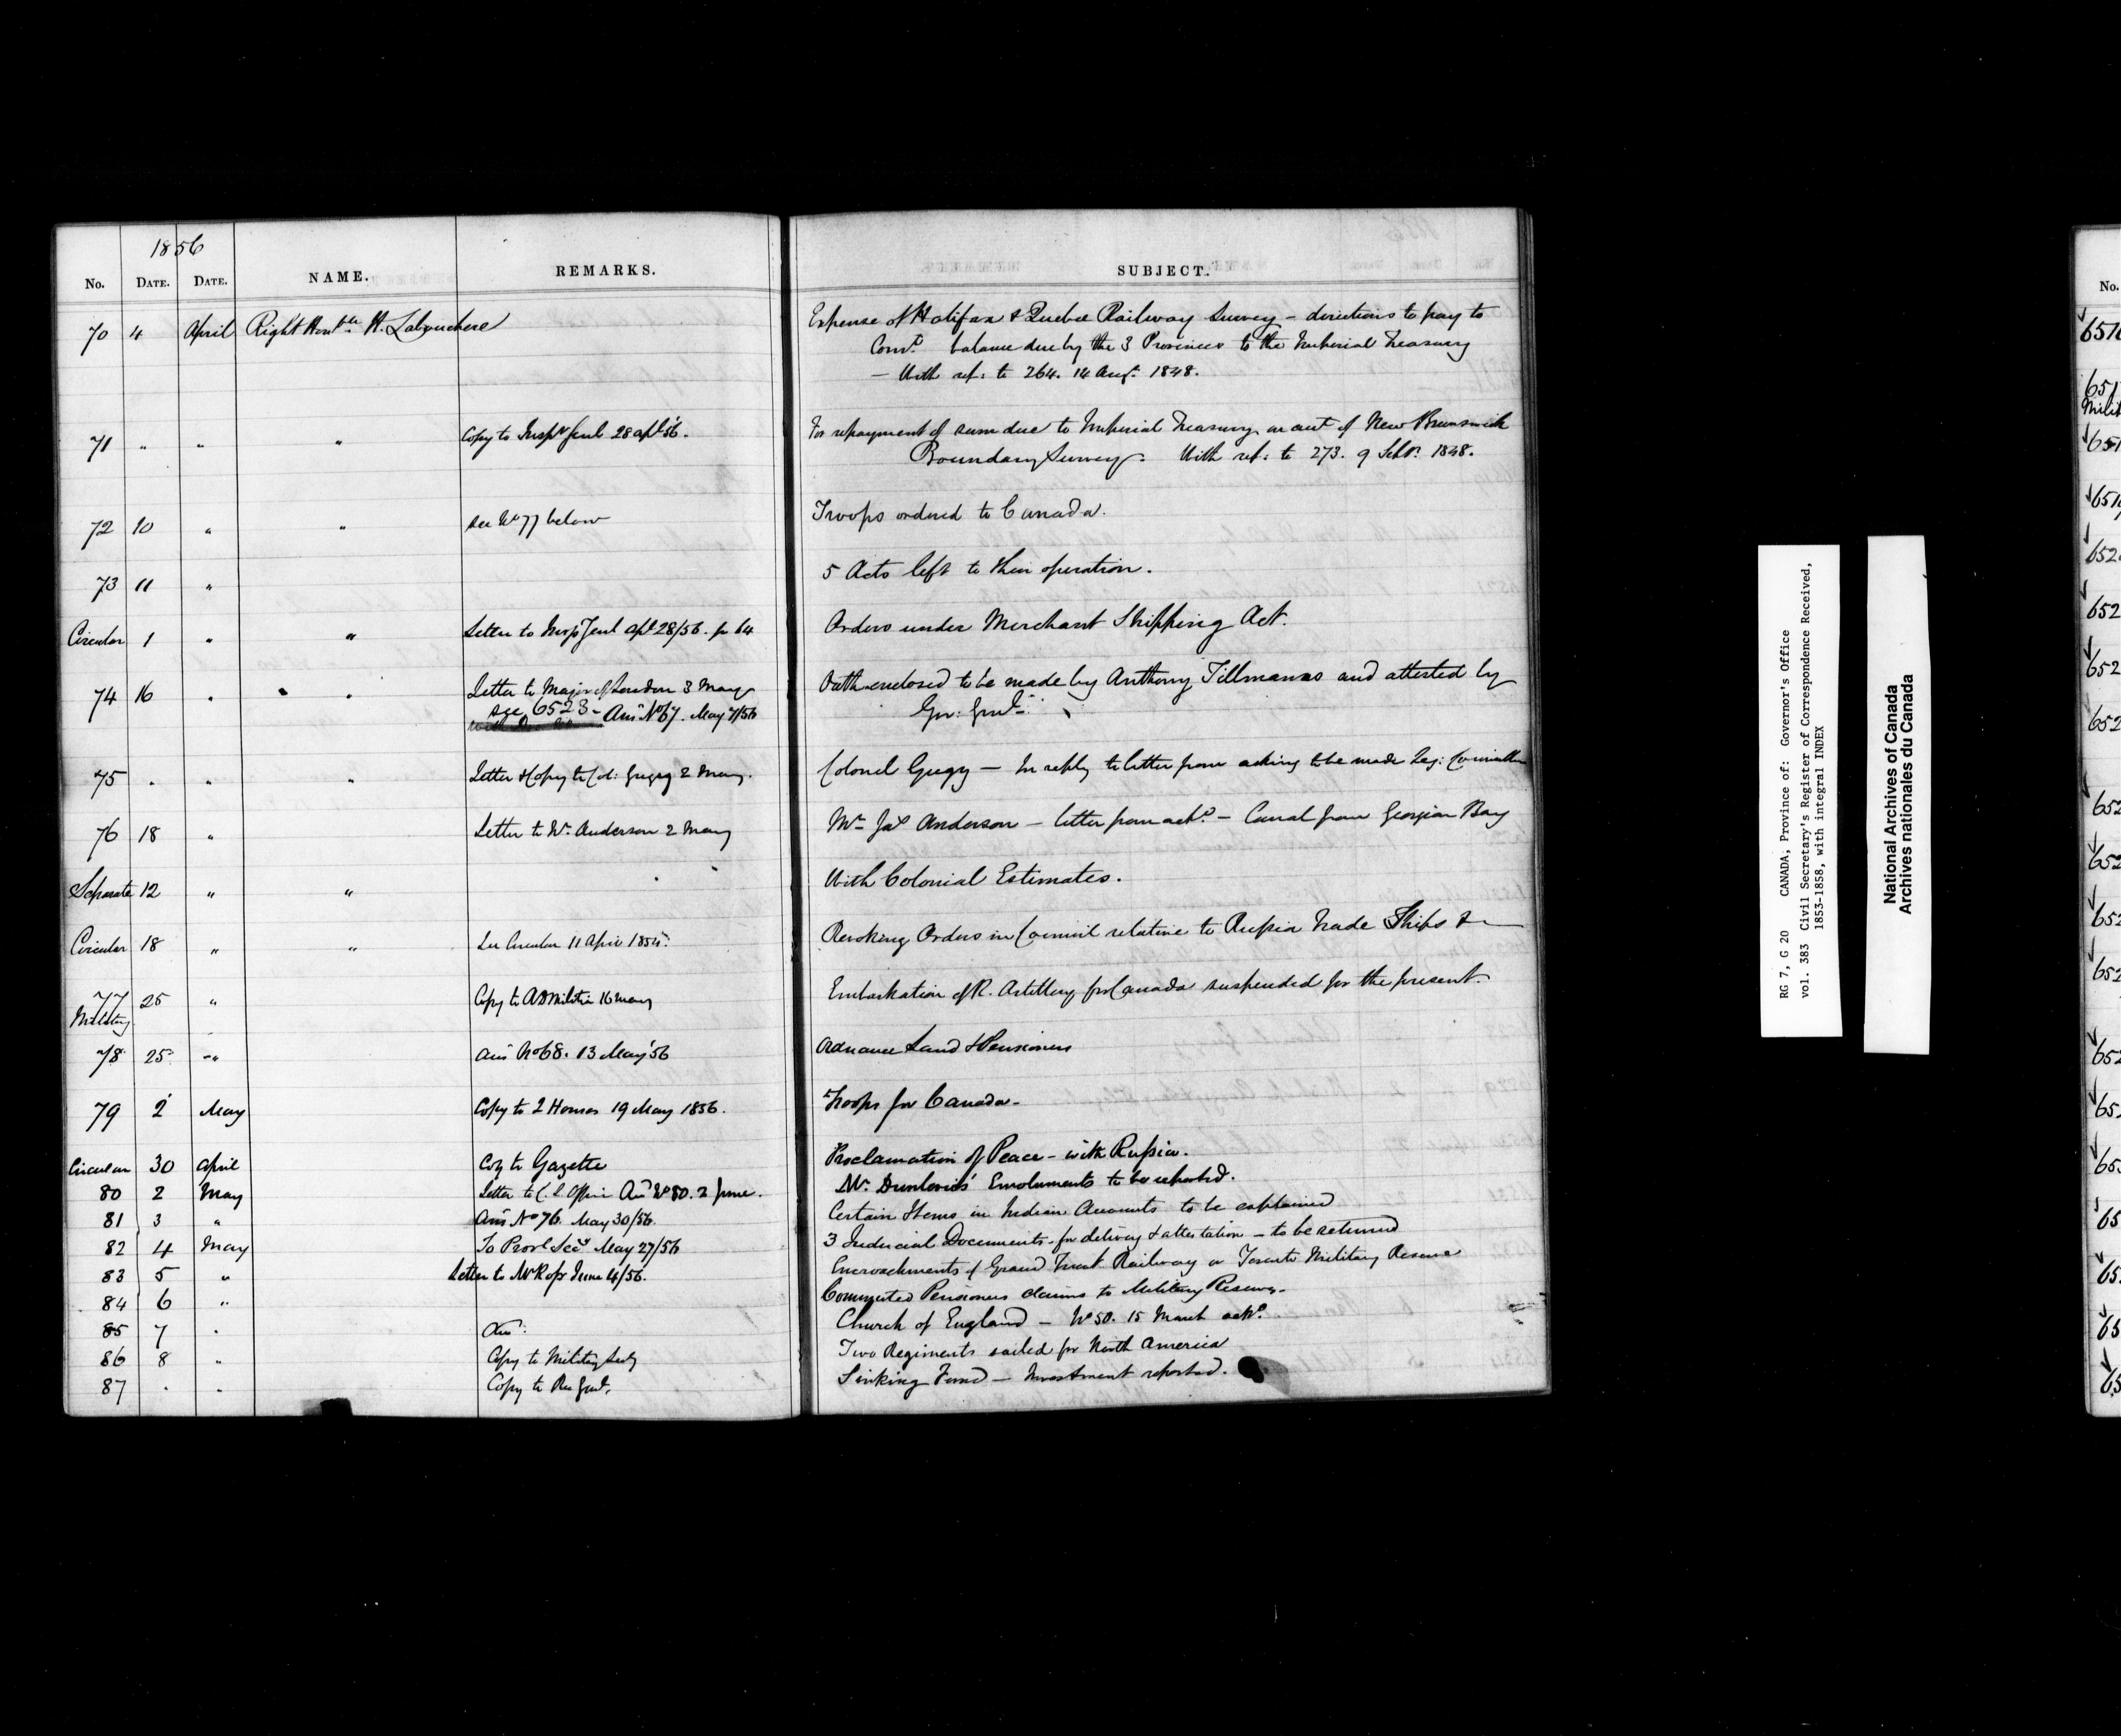 1856
No. DATE. DATE. NAME. REMARKS. SUBJECT.
70 4 April Right Honble H. Labouchere Expense of Halifax & Quebec Railway Survey – directions to pay to
Comt balance due by the 3 Provinces to the Imperial Treasury
– With ref: to 264. 14 Augt 1848.
71 " " " Copy to Inspr Genl 28 apl 56. For repayment of sum due to Imperial Treasury on acct of New Brunswick
Boundary Survey. With ref: to 273. 9 Sepr 1848.
72 10 " " see No 77 below Troops ordered to Canada.
73 11 " 5 Acts left to their operation.
Circular 1 " " Letter to Insp Genl apl 28/56. for 64 Orders under Merchant Shipping Act.
74 16 " " Letter to Major of London 3 May Oath enclosed to be made by Anthony Tillmanns and attested by
see 6523 – Ans No 67. May 7/56 Gov: Genl
75 " " " Letter & Copy to Col: Gugy 2 May. Colonel Gugy – In reply to letter from asking to be made Leg: Councillor
76 18 " Letter to Mr Anderson 2 May Mr Jas Anderson – letter from ackd – Canal from Georgian Bay
Separate 12 " " With Colonial Estimates.
Circular 18 " " See Circular 11 April 1854. Revoking Orders in Council relative to Russia trade Ships &
77 25 " Copy to AG Militia 16 May Embarkation of R. Artillery for Canada suspended for the present.
Military
78 25 " Ans No 68. 13 May 56 Ordnance Land & Pensioners
79 2 May Copy to 2 Houses 19 May 1856. Troops for Canada –
Circular 30 April Coy to Gazette Proclamation of Peace – with Russia.
80 2 May Letter to C. L Office Ans No 80. 2 June. Mr. Emoluments to be reported.
81 3 " Ans No 76. May 30/56. Certain Items in Indian Accounts to be explained
82 4 May To Provl Secy May 27/56 3 Judicial Documents – for delivery & attestation – to be returned
83 5 " Letter to Mr Ross June 4/56. Encroachments of Grand Trunk Railway on Toronto Military Reserve
84 6 " Commuted Pensioners claims to Military Reserve.
85 7 " Ans: Church of England – No 50. 15 March ackd
86 8 " Copy to Military Secy Two Regiments sailed for North America
87 " " Copy to Rec Genl. Sinking Fund – Investment reported.
RG 7, G 20 CANADA, Province of: Governor's Office
vol. 383 Civil Secretary's Register of Correspondence Received,
1853-1858, with integral INDEX
National Archives of Canada
Archives nationales du Canada
No.